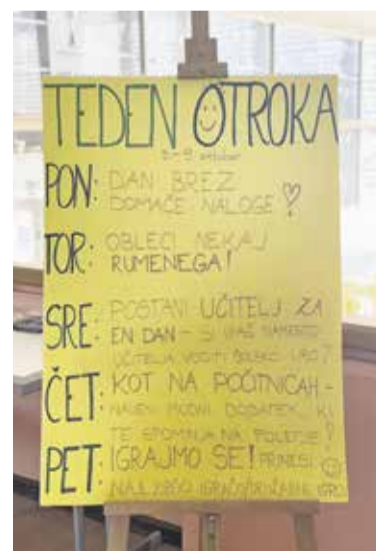 TEDEN OTROKA
5.-9. oktober
PON: DAN BREZ
DOMAČE NALOGE
TOR: OBLECI NEKAJ
RUMENEGA!
SRE: POSTANI UČITELJ ZA
EN DAN - SI UPAŠ NAMESTO
UČITELJA VODITI ŠOLSKO URO?
ČET: KOT NA POČITNICAH -
MODNI DODATEK, KI
TE SPOMINJA NA POLETJE!
PET: IGRAJMO SE! PRINESI
NAJLJUBŠO IGRAČO/DRUŽABNO IGRO